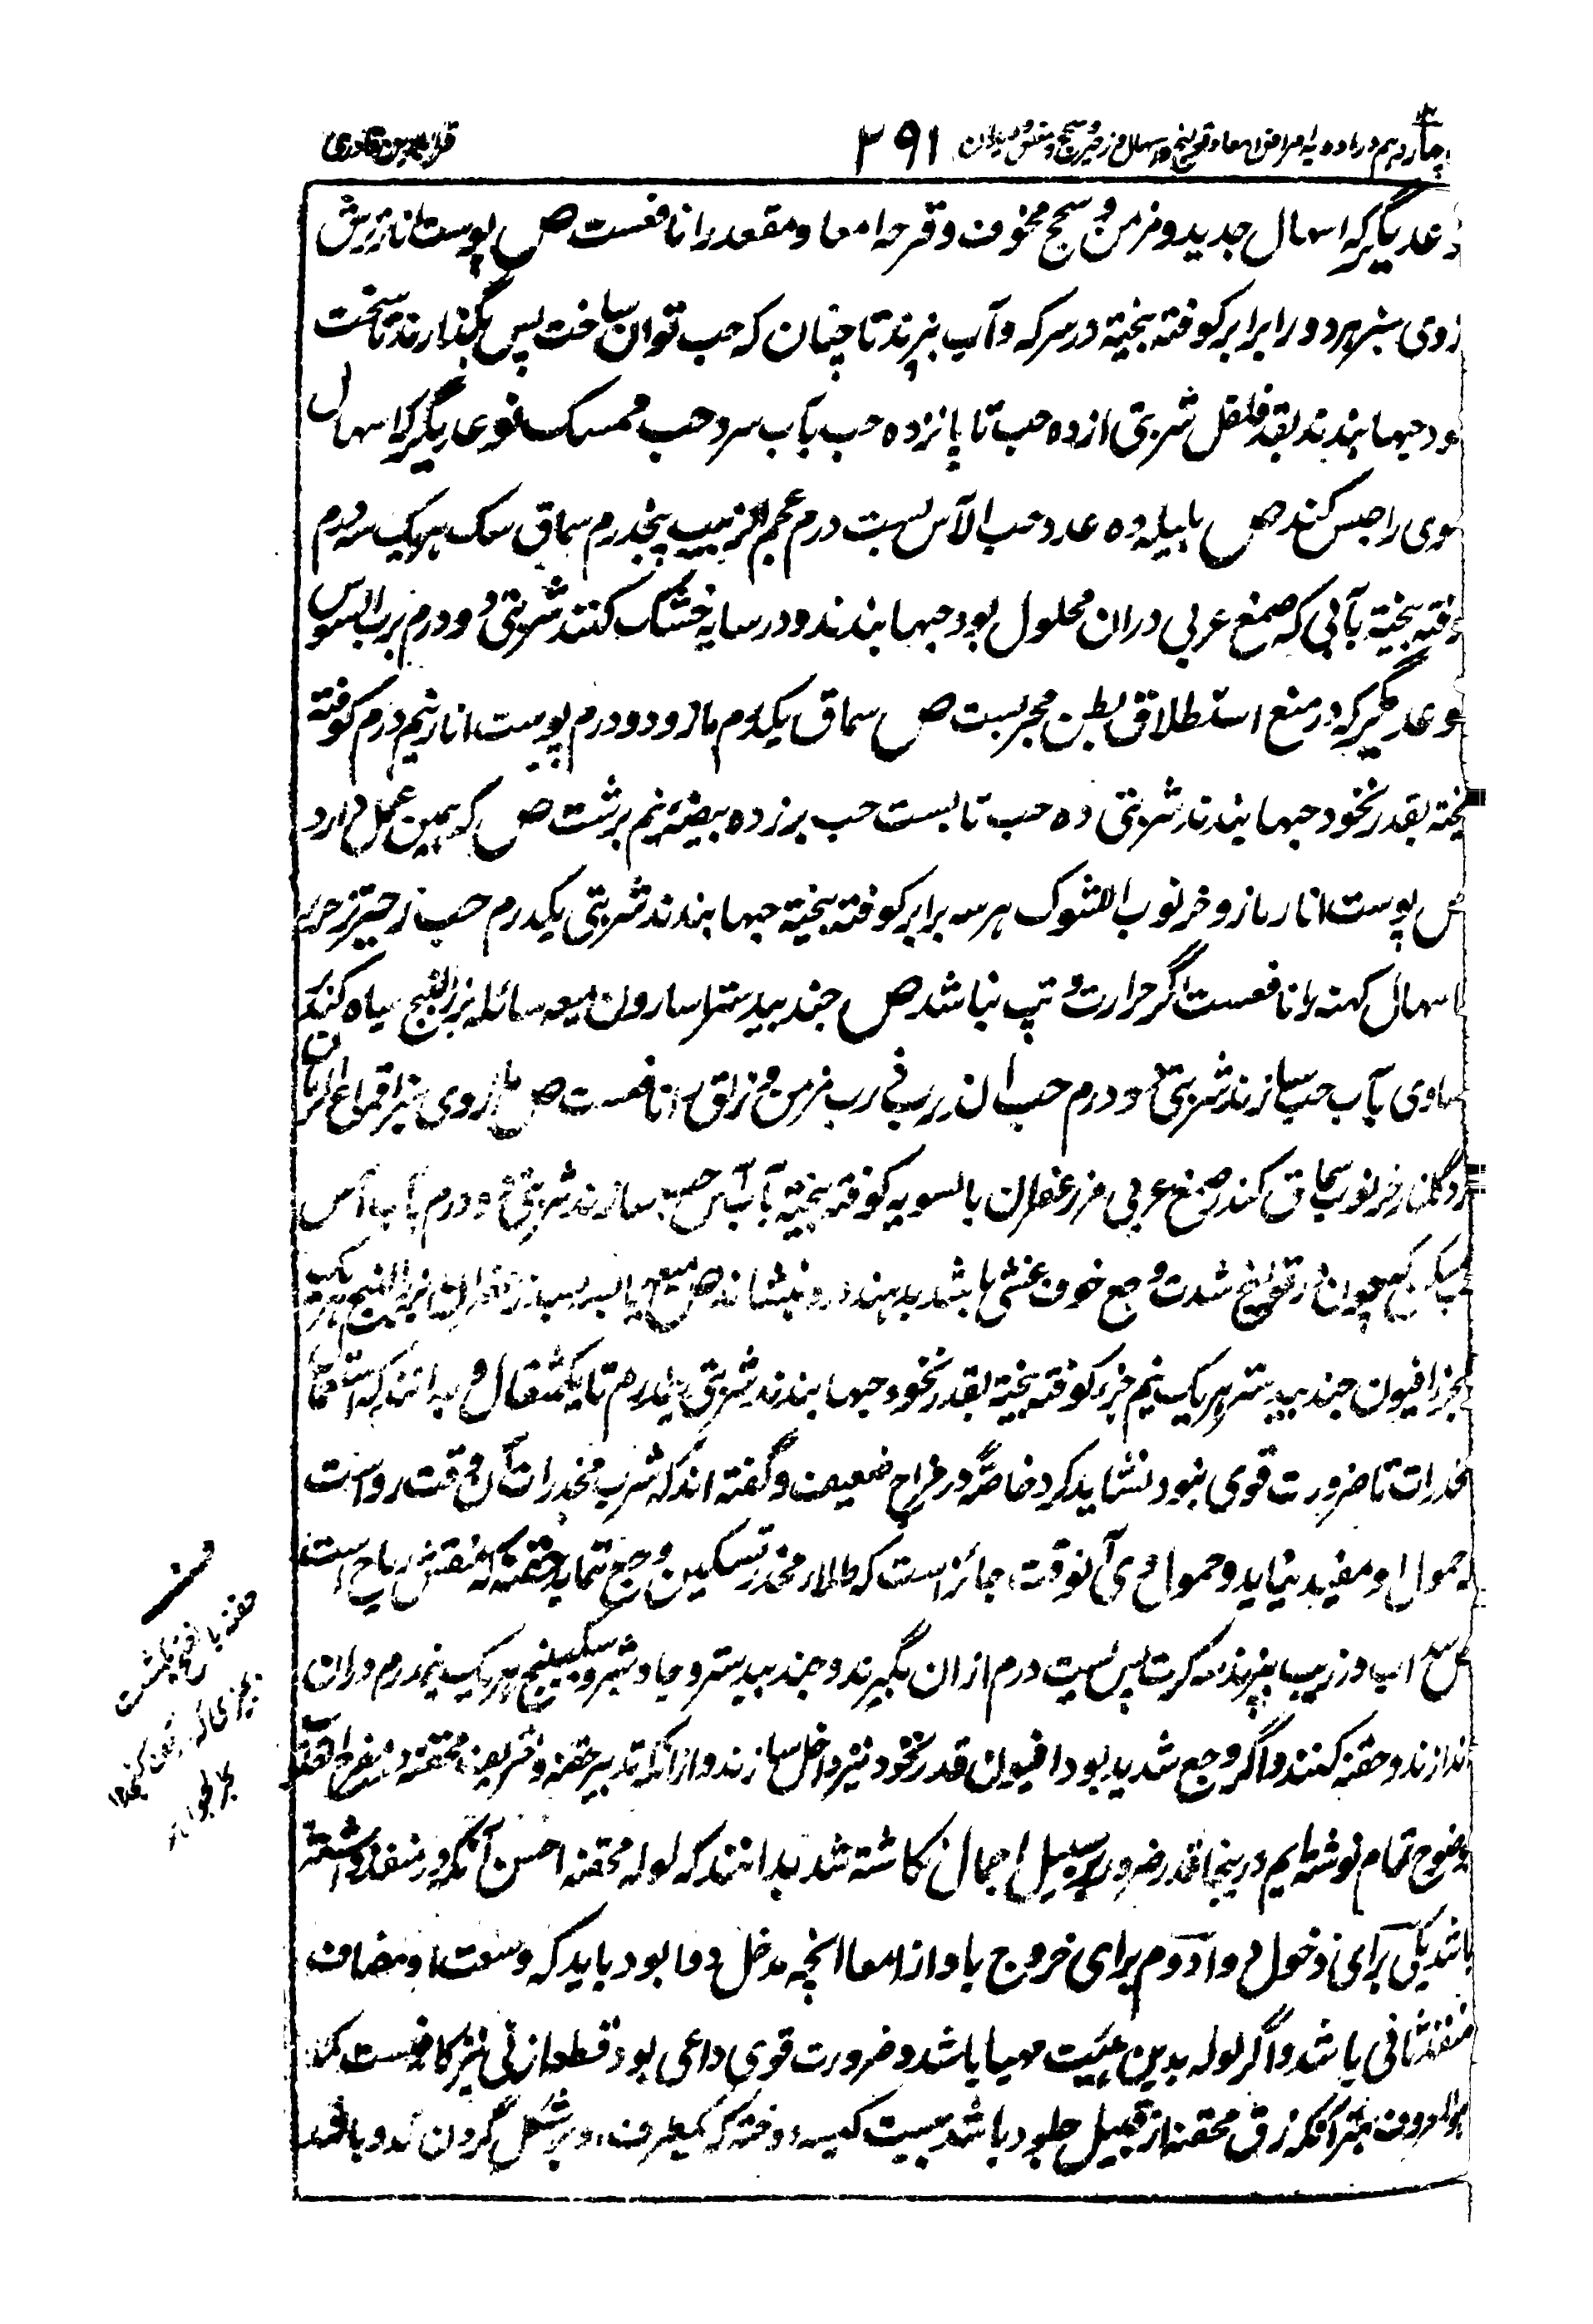 چهاردهم در ادویه امراض امعا و قولنج و اسهال و زحیر و سحج و مغص و دیدان ۳۹۱ قرابادین قادری
دیگر که اسهال جدید و مزمن و سحج مخوف و قرحه امعا و مقعد را نافعست ص پوست انار ترش
زوی سبز هر دو را برابر کوفته بیخته در سرکه و آب بپزند تا چنان که حب توان ساخت پس بگذارند تا سخت
ود حبها بندند بقدر فلفل شربتی از ده حب تا پانزده حب بآب سرد حب ممسک نوعدیگر که اسهال
وی را حبس کند ص هلیله ده عدد حب الآس بست درم عجم الزبیب پنجدرم سماق سک هر یک سه درم
وفته بیخته بآبی که صمغ عربی دران محلول بود حبها بندند و در سایه خشک کنند شربتی دو درم برب السوس
وعدیگر که در منع استطلاق بطن مجربست ص سماق یکدرم مازو دو درم پوست انار نیم درم کوفته
یخته بقدر نخود حبها بندند شربتی ده حب تا بست حب بر زرده بیضه نیم برشت ص که همین عمل دارد
ص پوست انار مازو خرنوب الشوک هر سه برابر کوفته بیخته حبها بندند شربتی یکدرم حب زحیر
اسهال کهنه را نافعست اگر حرارت و تپ نباشد ص جندبیدستر اسارون میعه سائله بزر البنج سیاه کندر
ساوی بآب حب سازند شربتی دو درم حب ان ذرب مزمن و زلق را نافعست ص مازوی سبز اقماع الرمان
گلنار خرنوب سماق کندر صمغ عربی مر زعفران بالسویه کوفته بیخته بآب آس حب سازند شربتی دو درم بآب آس
چون در قولنج شدت وجع خوف غشی باشد بدهند درد بنشاند ص میعه یابسه زعفران بزر البنج
جزر افیون جندبیدستر هر یک نیم جزء کوفته بیخته بقدر نخود حبها بندند شربتی یکدرم تا یکمثقال و بدانند که استعمال
خدرات تا ضرورت قوی نبود نشاید کرد خاصه در مزاج ضعیف و گفته اند که شرب مخدرات آن وقت رواست
که حمول او مفید نیاید و حمول وی آنوقت جائز است که طلاء مخدر تسکین وجع ننماید حقنه که منقش ریاح است
سداب در زیت بپزند سه کرت پس بست درم ازان بگیرند و جندبیدستر و جاوشیر و سکبینج هر یک نیمدرم دران
اندازند و حقنه کنند و اگر وجع شدید بود افیون قدر نخود نیز داخل سازند و از آنکه تدبیر حقنه و تعریف محقنه در مفرح القلوب
بوضوح تمام نوشته ایم درینجا قدر ضرور بر سبیل اجمال نگاشته شد بدانند که لوله محقنه احسن آنکه دو منفذ داشته
باشد یکی برای دخول دوا دوم برای خروج باد از امعا آنچه مدخل دوا بود باید که وسعت او مضاعف
منفذ ثانی باشد و اگر لوله بدین هیئت مهیا نباشد و ضرورت قوی داعی بود قطعه از نی نیز کافیست
بهتر آنکه زق محقنه از قبیل جلود باشد بهیئت کیسه دوخته که یکطرف او بر شکل گردن کدو باشد
حقنه